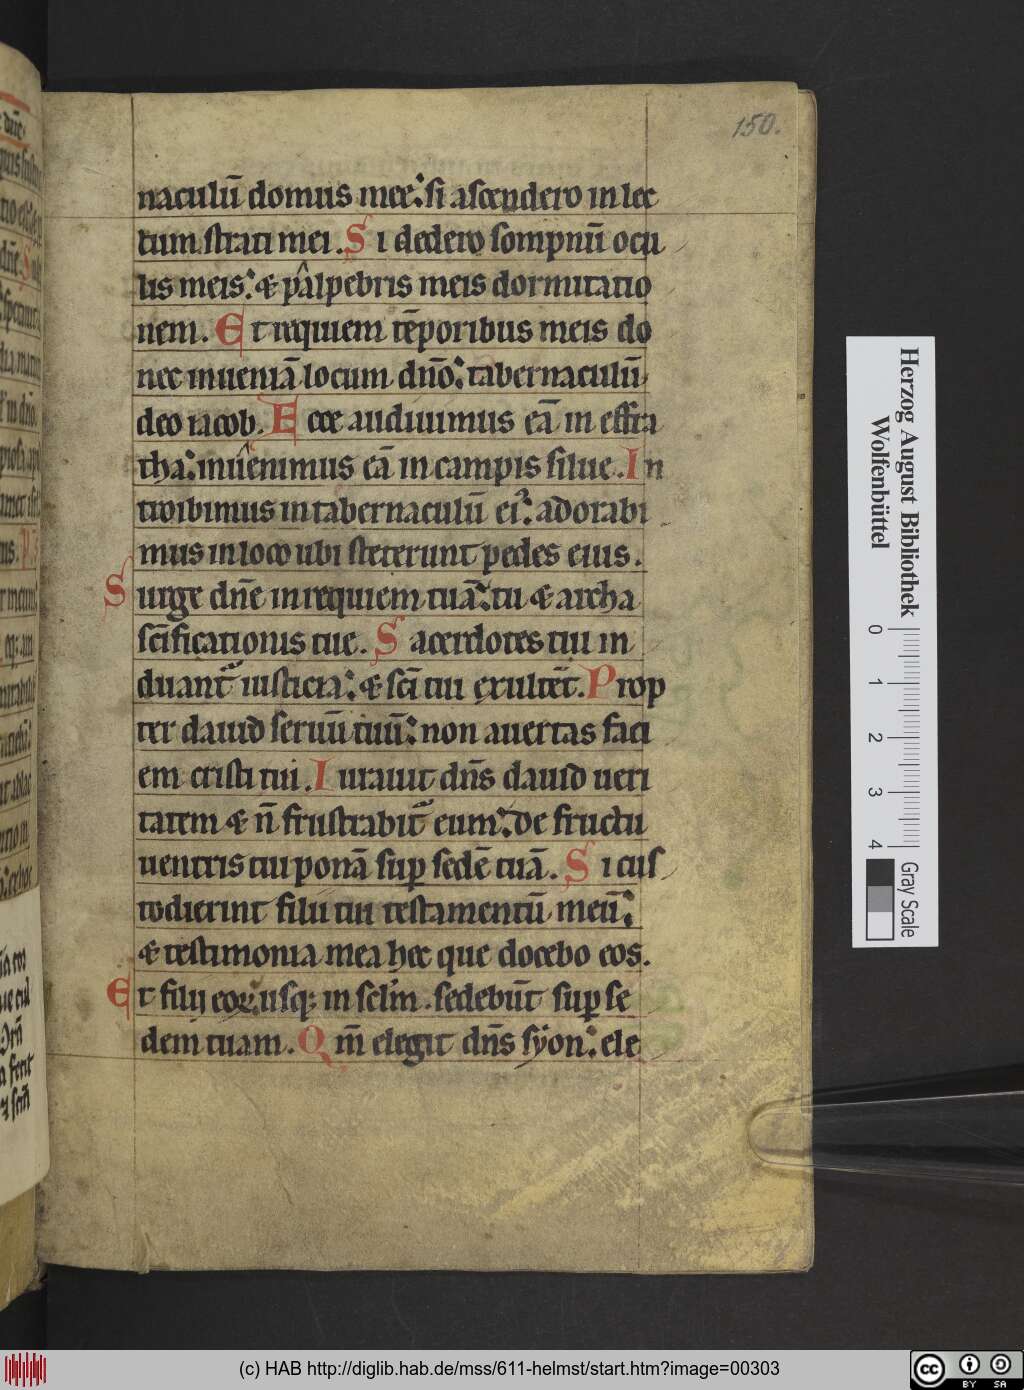 150.
naculū domus mee: si ascendero in lec
tum strati mei. Si dedero sompnū ocu
lis meis: & palpebris meis dormitatio
nem. Et requiem tēporibus meis do
nec inueniā locum dn̄o: tabernaculū
deo iacob. Ecce audiuimus eā in effra
tha: inuenimus eā in campis silue. In
troibimus in tabernaculū ei᾽: adorabi
mus in loco ubi steterunt pedes eius.
Surge dn̄e in requiem tuā: tu & archa
sc̄ificationis tue. Sacerdotes tui in
duant᷑ iusticia: & sc̄i tui exultēt. Prop
ter dauid seruū tuū: non auertas faci
em cristi tui. Iurauit dn̄s dauid ueri
tatem & n̄ frustrabit᷑ eum: de fructu
uentris tui ponā sup sedē tuā. Si cus
todierint filii tui testamentū meū:
& testimonia mea hec que docebo eos.
Et filij eoꝝ usqꝫ in sclm̄. sedebūt sup se
dem tuam. Qm̄ elegit dn̄s syon: ele
Herzog August Bibliothek
Wolfenbüttel
0 1 2 3 4
Gray Scale
(c) HAB http://diglib.hab.de/mss/611-helmst/start.htm?image=00303
cc BY SA